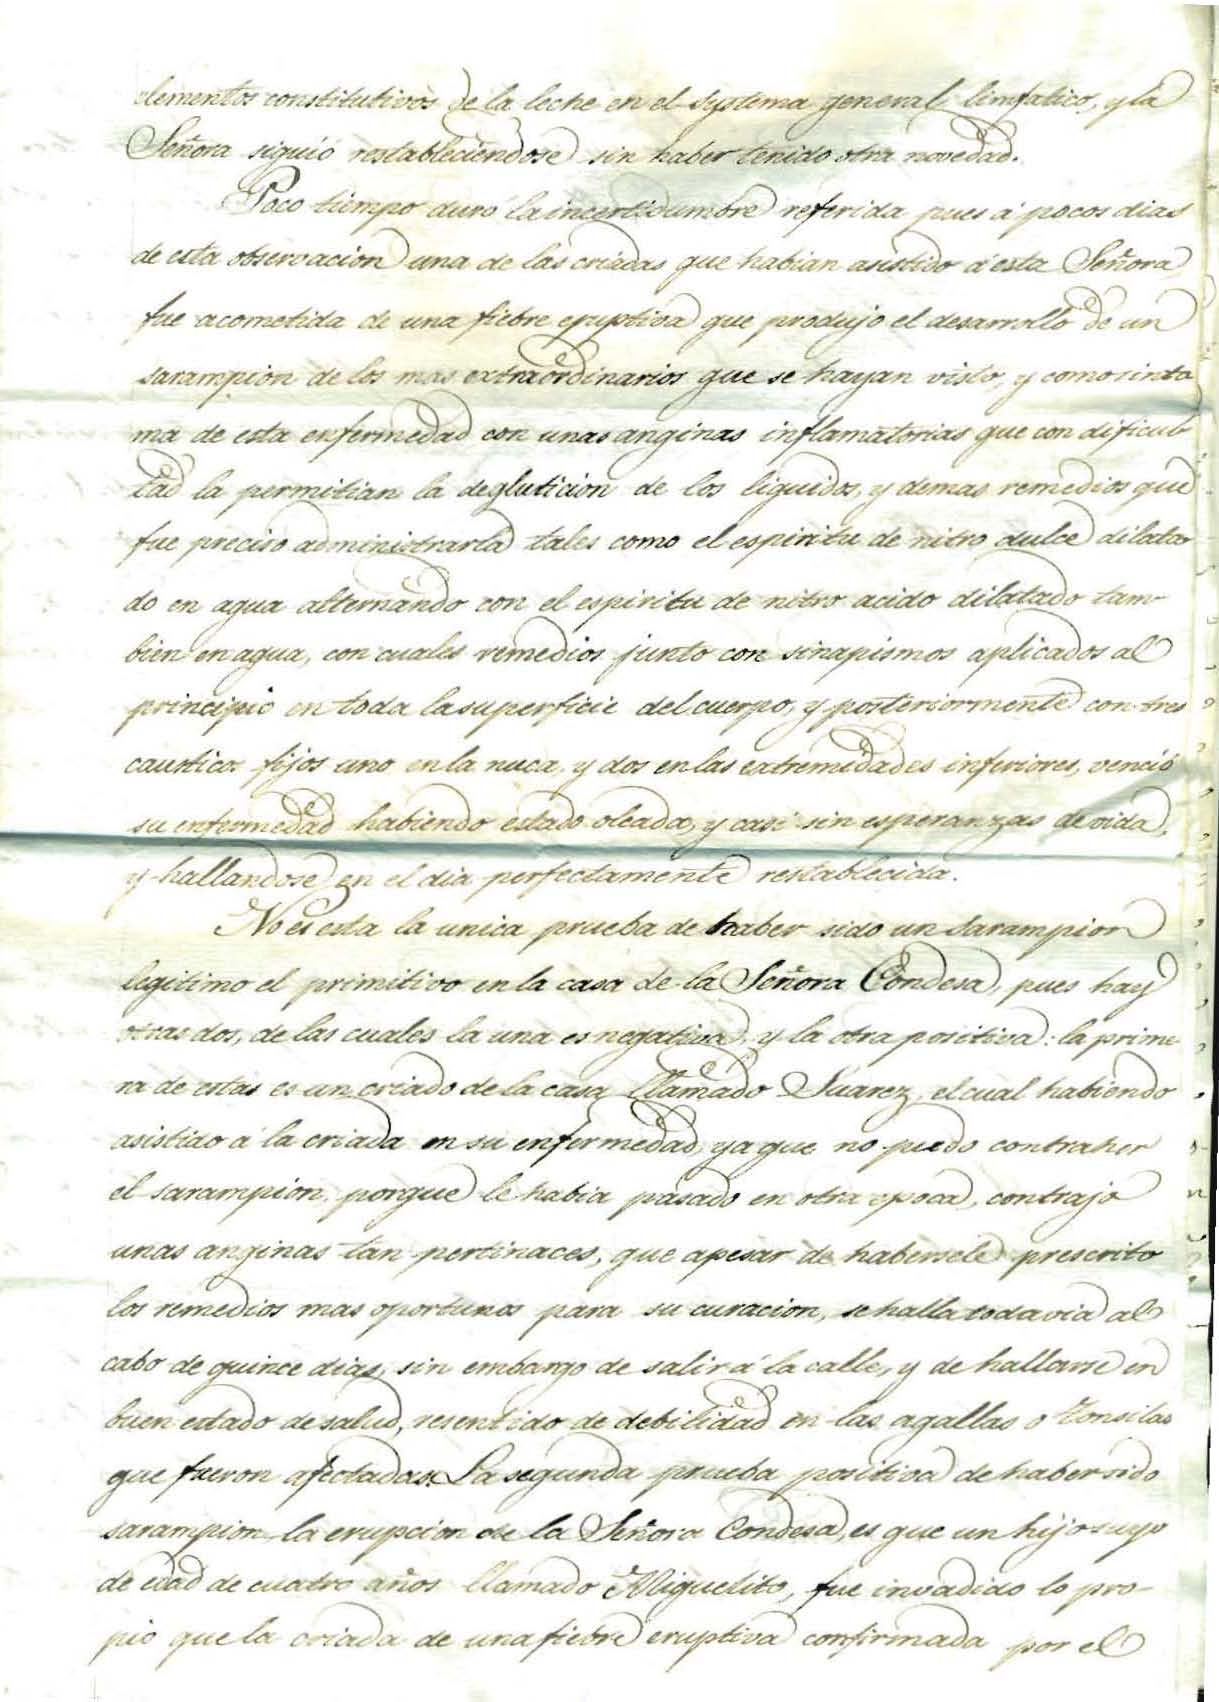 elementos constitutivos de la leche en el systema general limfatico, y la
Señora siguió restableciendose sin haber tenido otra novedad.
Poco tiempo duro la incertidumbre referida pues á pocos dias
de esta observacion una de las criadas que habian asistido á esta Señora
fue acometida de una fiebre eruptiva que produjo el desarrollo de un
sarampion de los mas extraordinarios que se hayan visto, y como sinto
ma de esta enfermedad con unas anginas inflamatorias que con dificul-
tad la permitian la degluticion de los liquidos, y demas remedios que
fue preciso administrarla tales como el espiritu de nitro dulce dilata
do en agua alternando con el espiritu de nitro acido dilatado tam-
bien en agua, con cuales remedios junto con sinapismos aplicados al
principio en toda la superficie del cuerpo, y posteriormente con tres
causticos fijos uno en la nuca, y dos en las extremidades inferiores, venció
su enfermedad habiendo estado oleada, y casi sin esperanzas de vida,
y hallandose en el dia perfectamente restablecida.
No es esta la unica prueba de haber sido un sarampion
legitimo el primitivo en la casa de la Señora Condesa, pues hay
otras dos, de las cuales la una es negativa, y la otra positiva: la prime
ra de estas es un criado de la casa llamado Suarez, el cual habiendo
asistido á la criada en su enfermedad, ya que no puedo contraher
el sarampion porque le habia pasado en otra epoca, contrajo
unas anginas tan pertinaces, que apesar de habersele prescrito
los remedios mas oportunos para su curacion, se halla todavia al
cabo de quince dias, sin embargo de salir á la calle, y de hallarse en
buen estado de salud, resentido de debilidad en las agallas o tonsilas
que fueron afectadas. La segunda prueba positiva de haber sido
sarampion la erupcion de la Señora Condesa, es que un hijo suyo
de edad de cuatro años llamado Miguelito, fue invadido lo pro-
pio que la criada de una fiebre eruptiva confirmada por el